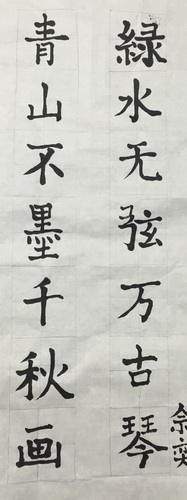 綠水无弦万古琴
青山不墨千秋画